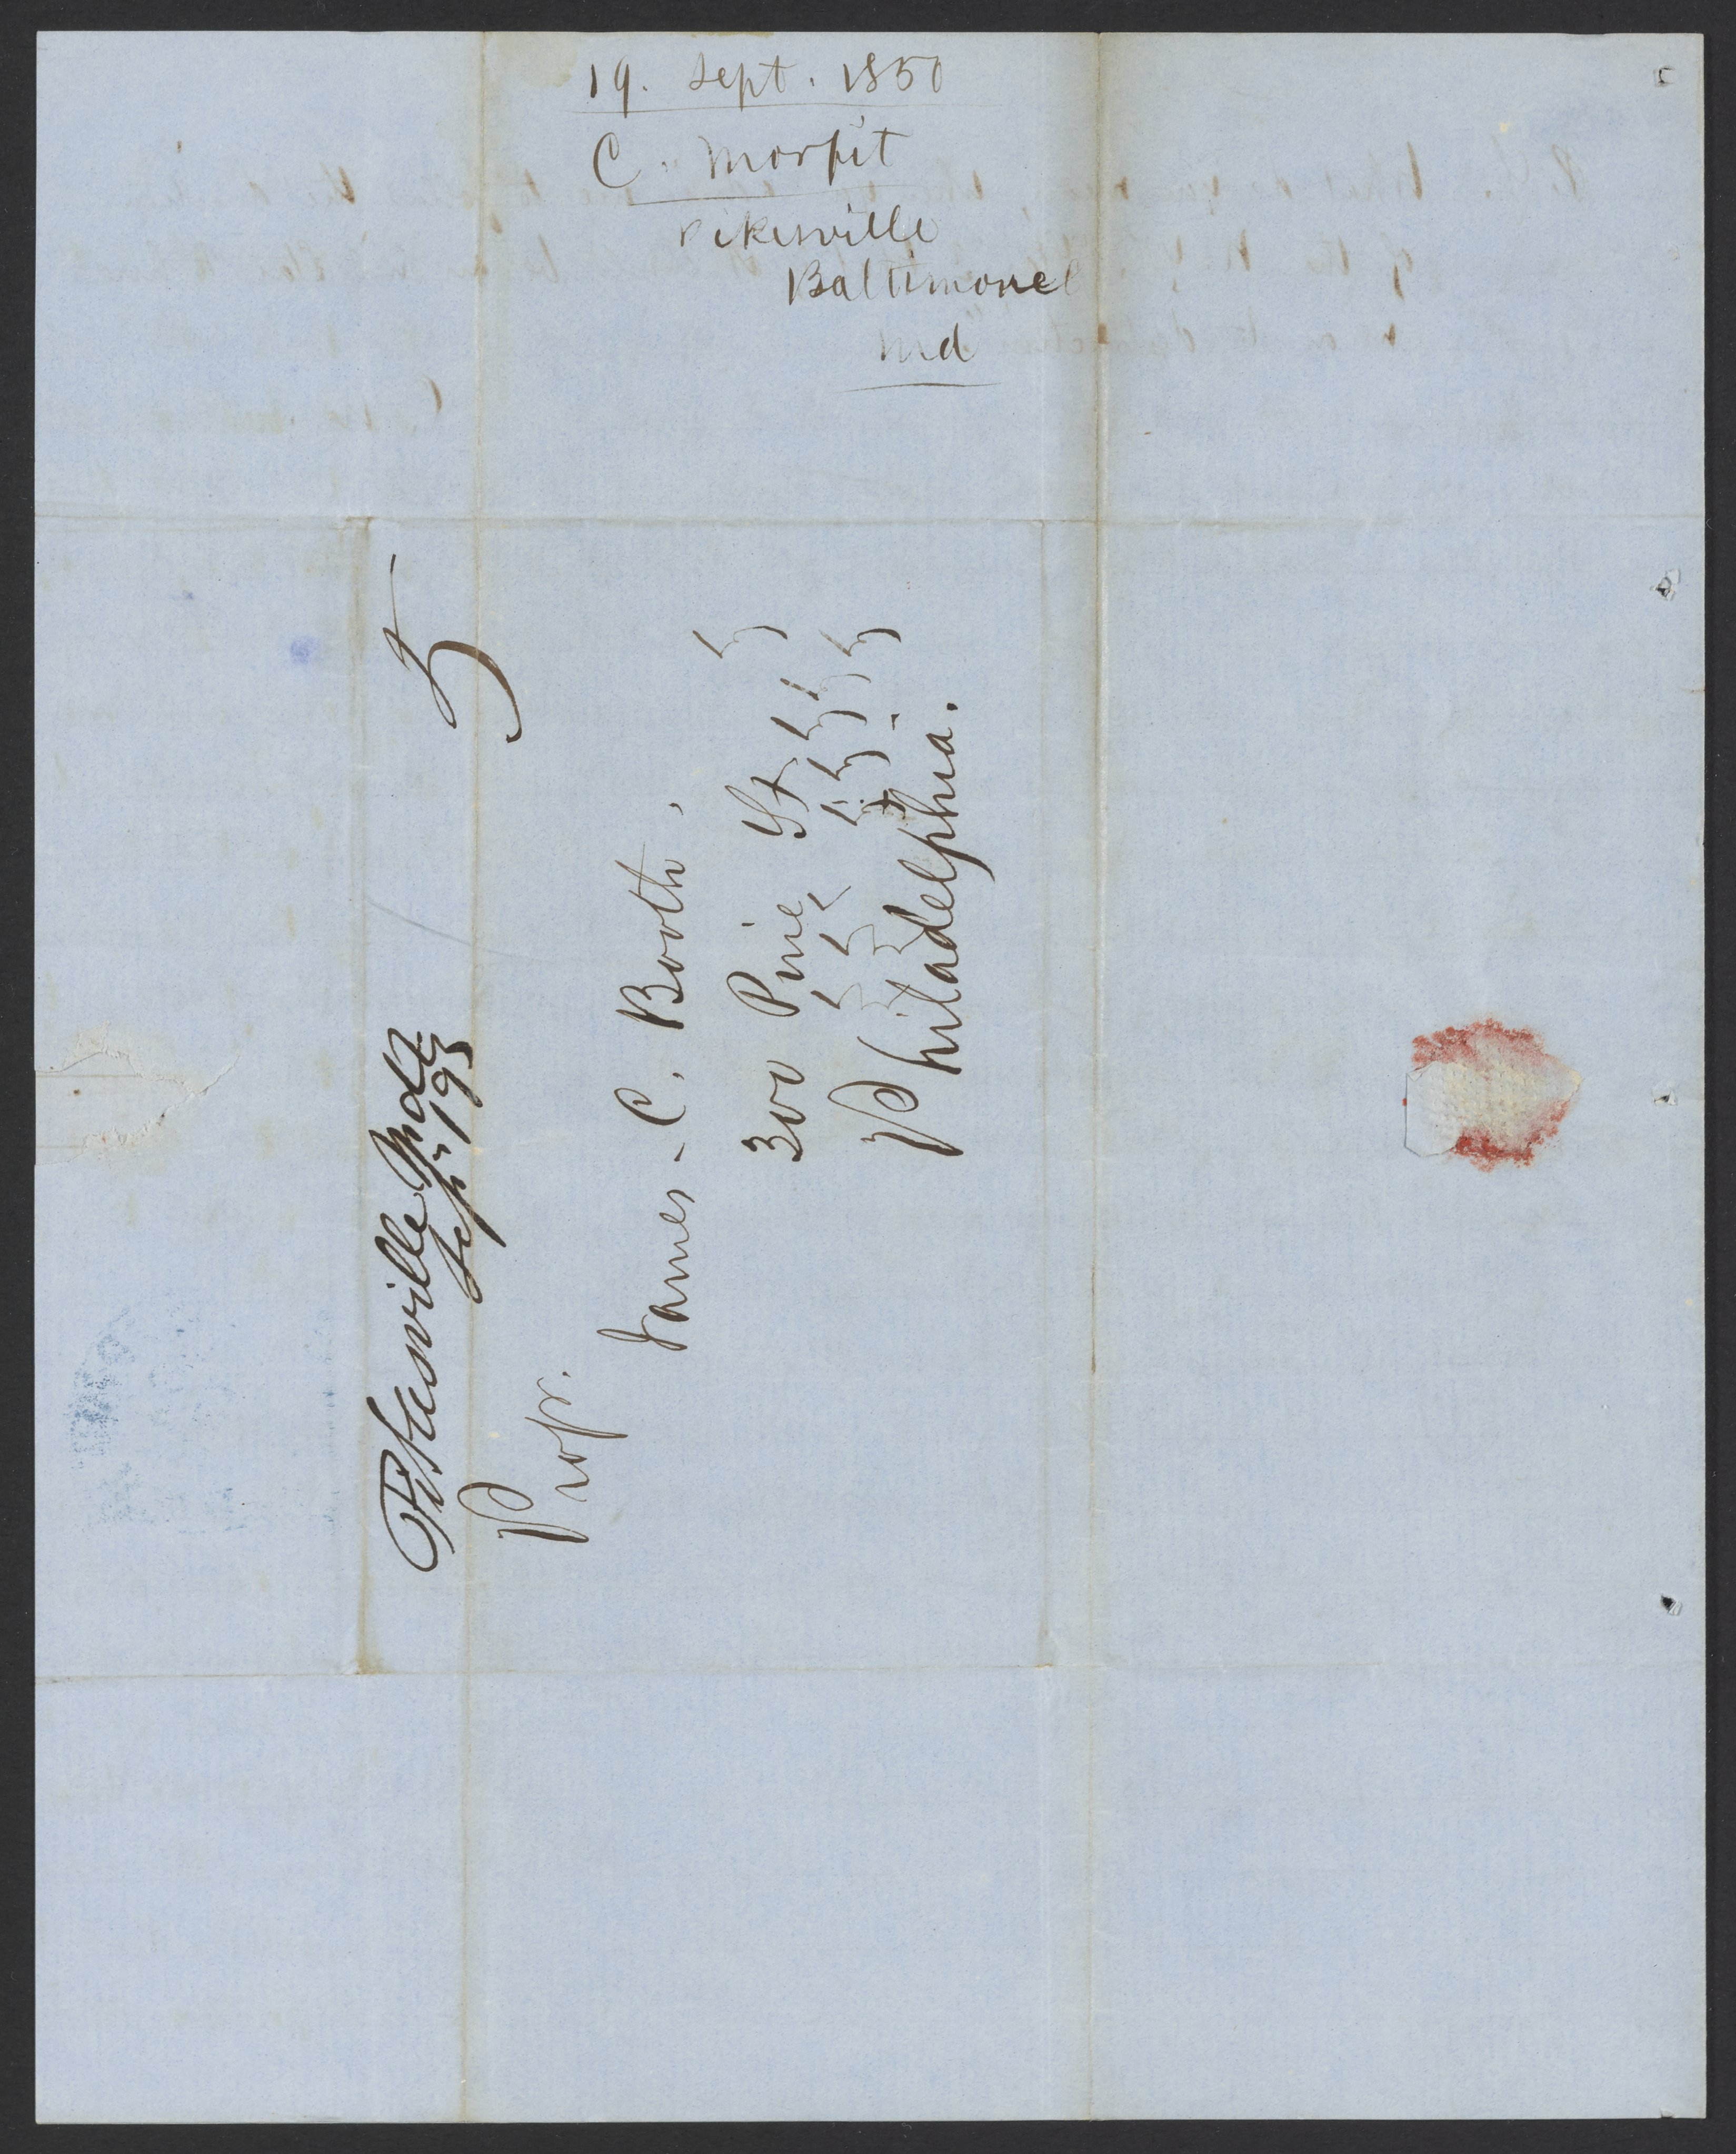 19. Sept. 1850
C. Morfit
Pikesville
Baltimore
Md
5
Pikesville Md
Sep 19
Prof.
James C. Booth,
300 Pine St
Philadelphia.